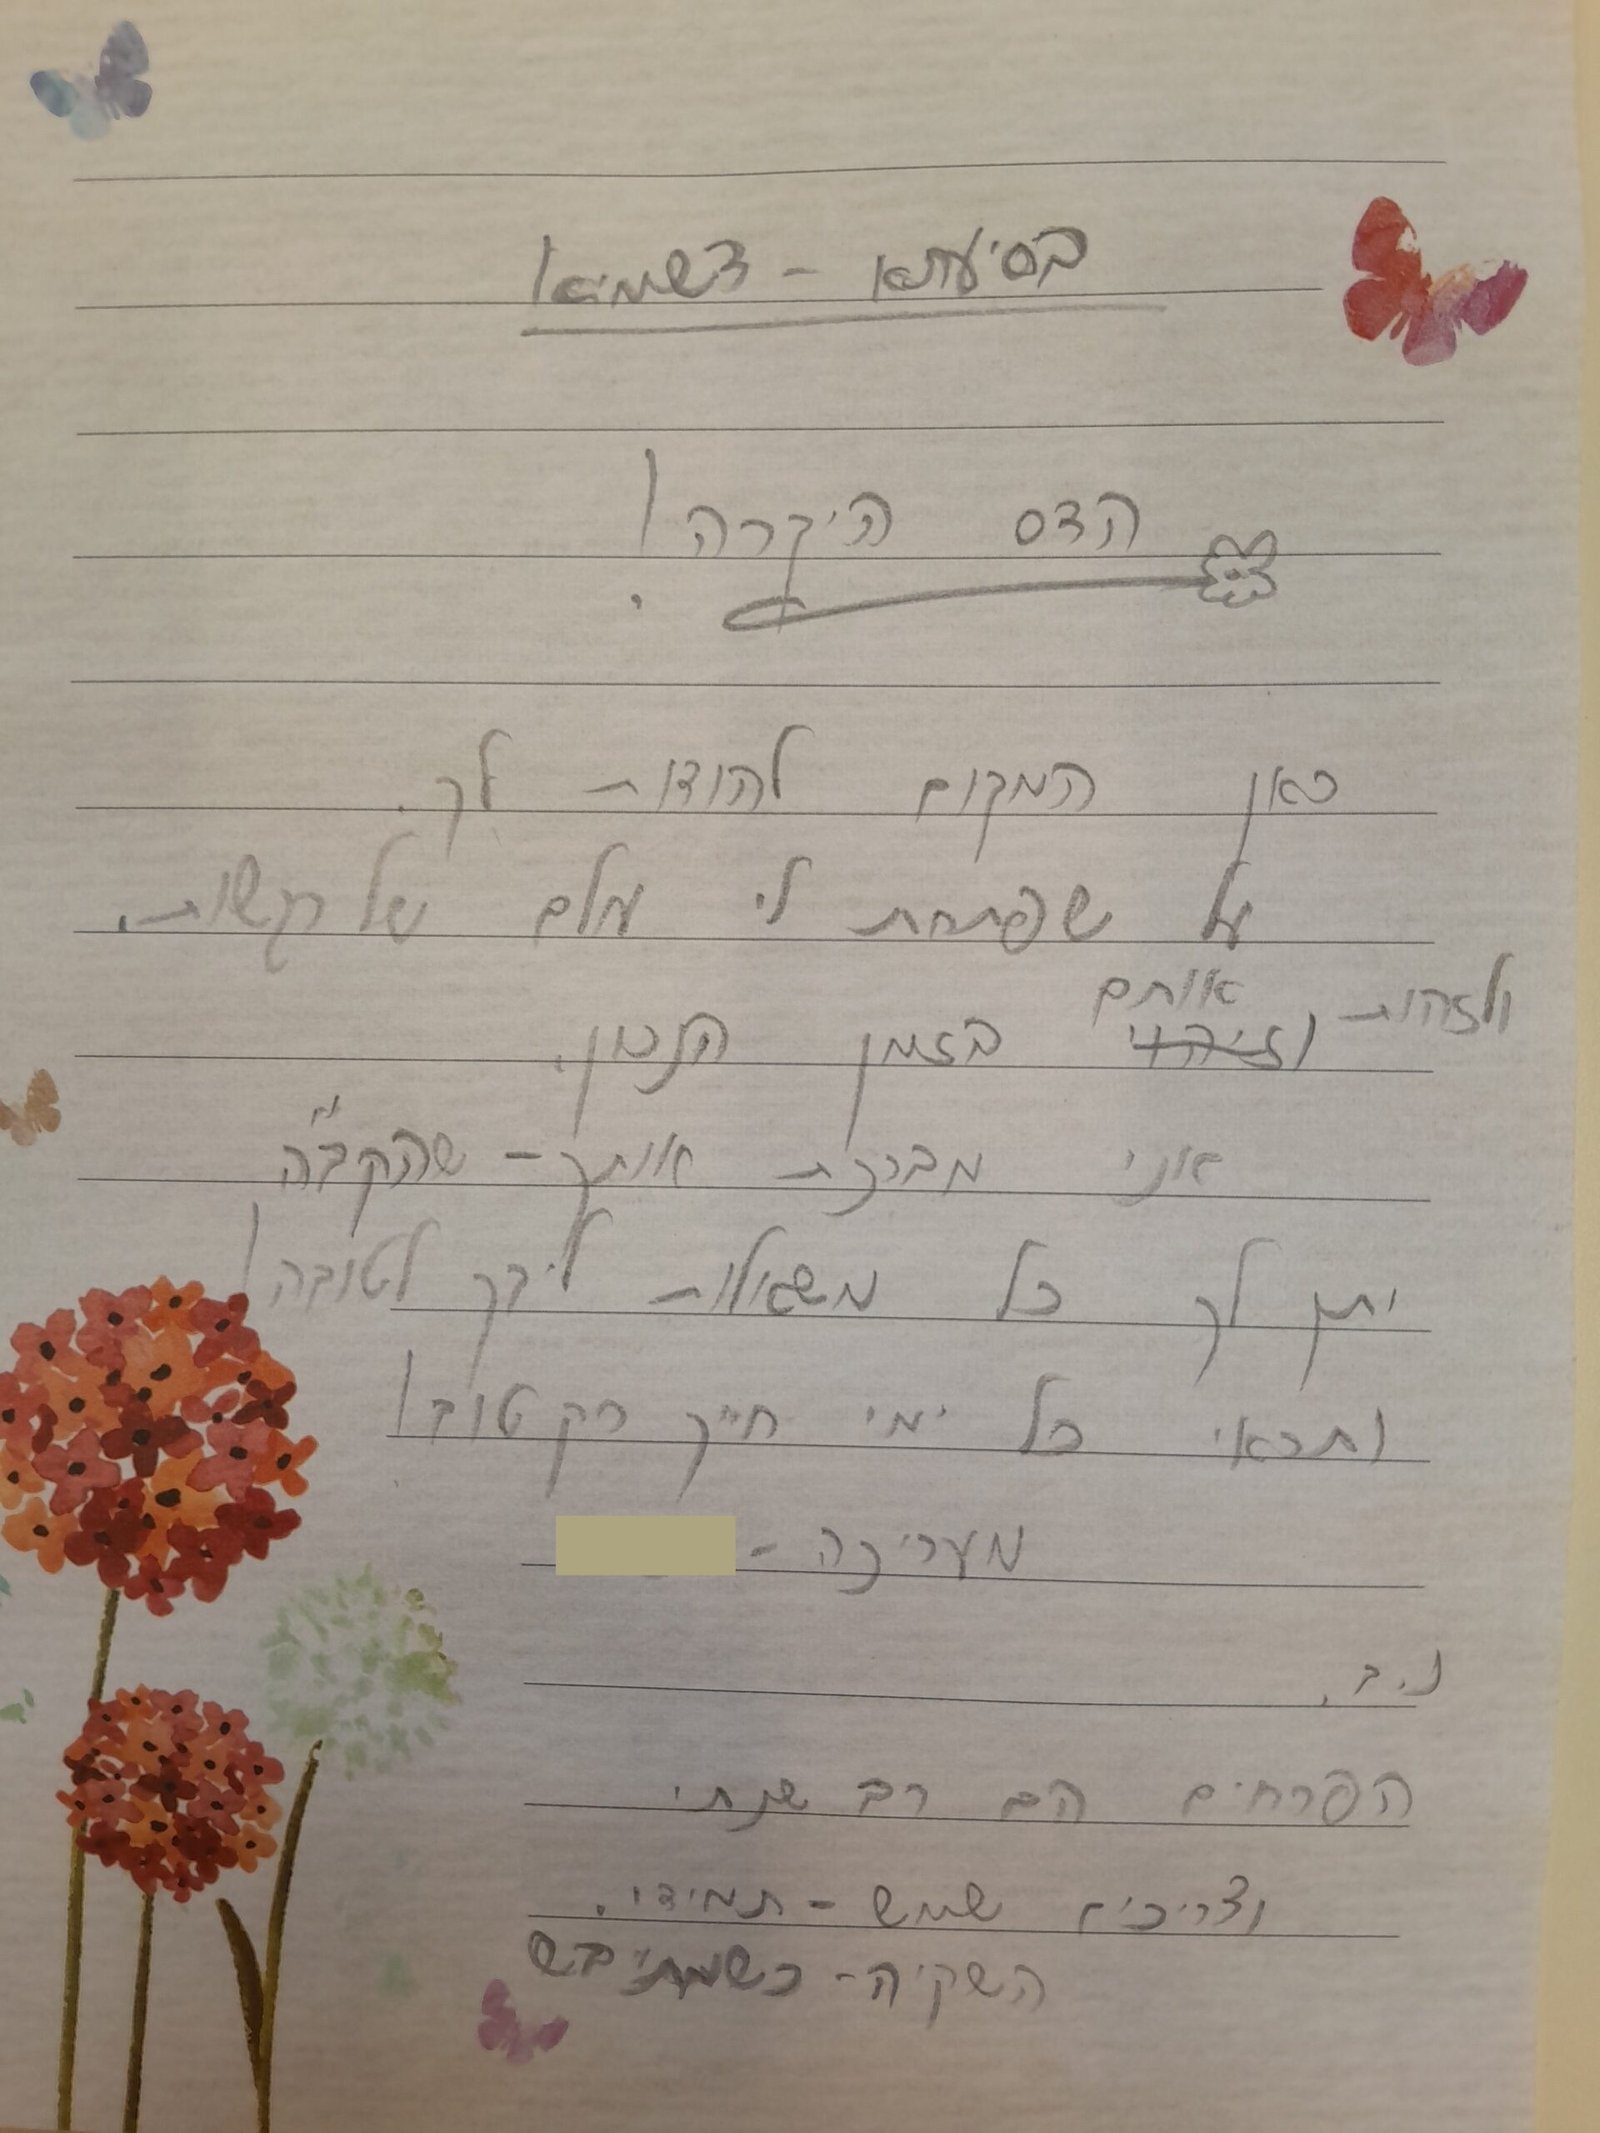 בסיעתא - דשמיא!
הדס היקרה!
כאן המקום להודות לך.
על שפתחת לי עולם של רגשות.
ולזהות אותם
וזיהוי בזמן הנכון.
אני מברכת אותך - שהקב"ה
יתן לך כל משאלות ליבך לטובה!
ותראי כל ימי חייך רק טוב!
מעריכה -
נ.ב.
הפרחים הם רב שנתי
וצריכים שמש - תמידי.
השקיה - כשמתייבש